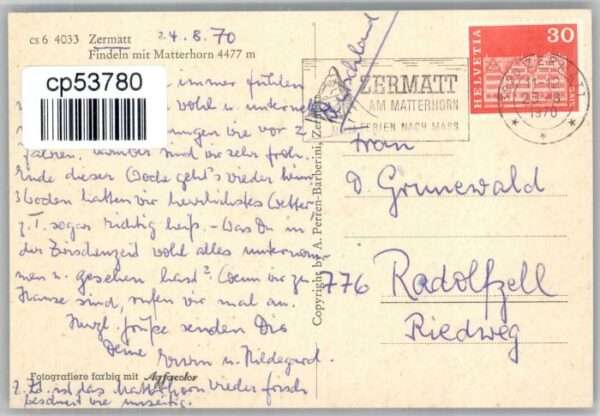 cs 6 4033 Zermatt
24.8.70
Findeln mit Matterhorn 4477 m
cp53780
immer fühlen
wohl u.
wie vor 2
sind wir sehr froh.
Ende dieser Woche geht's wieder heim
3 Wochen hatten wir herrlichstes Wetter
z. T. sogar richtig heiß. - Was Du in
der Zwischenzeit wohl alles unternom-
men u. gesehen hast? Wenn wir zu
Hause sind, rufen wir mal an.
Herzl. Grüße senden Dir
Deine Erwin u. Hildegard.
Fotografiere farbig mit Agfacolor
z. Zt. ist das Matterhorn wieder frisch
beschneit wie
Copyright by A. Perren-Barberini, Zermatt
Deutschland
ZERMATT
AM MATTERHORN
FERIEN NACH MASS
3920 ZERMATT
1970
HELVETIA
30
Frau
D. Grunewald
776 Radolfzell
Riedweg